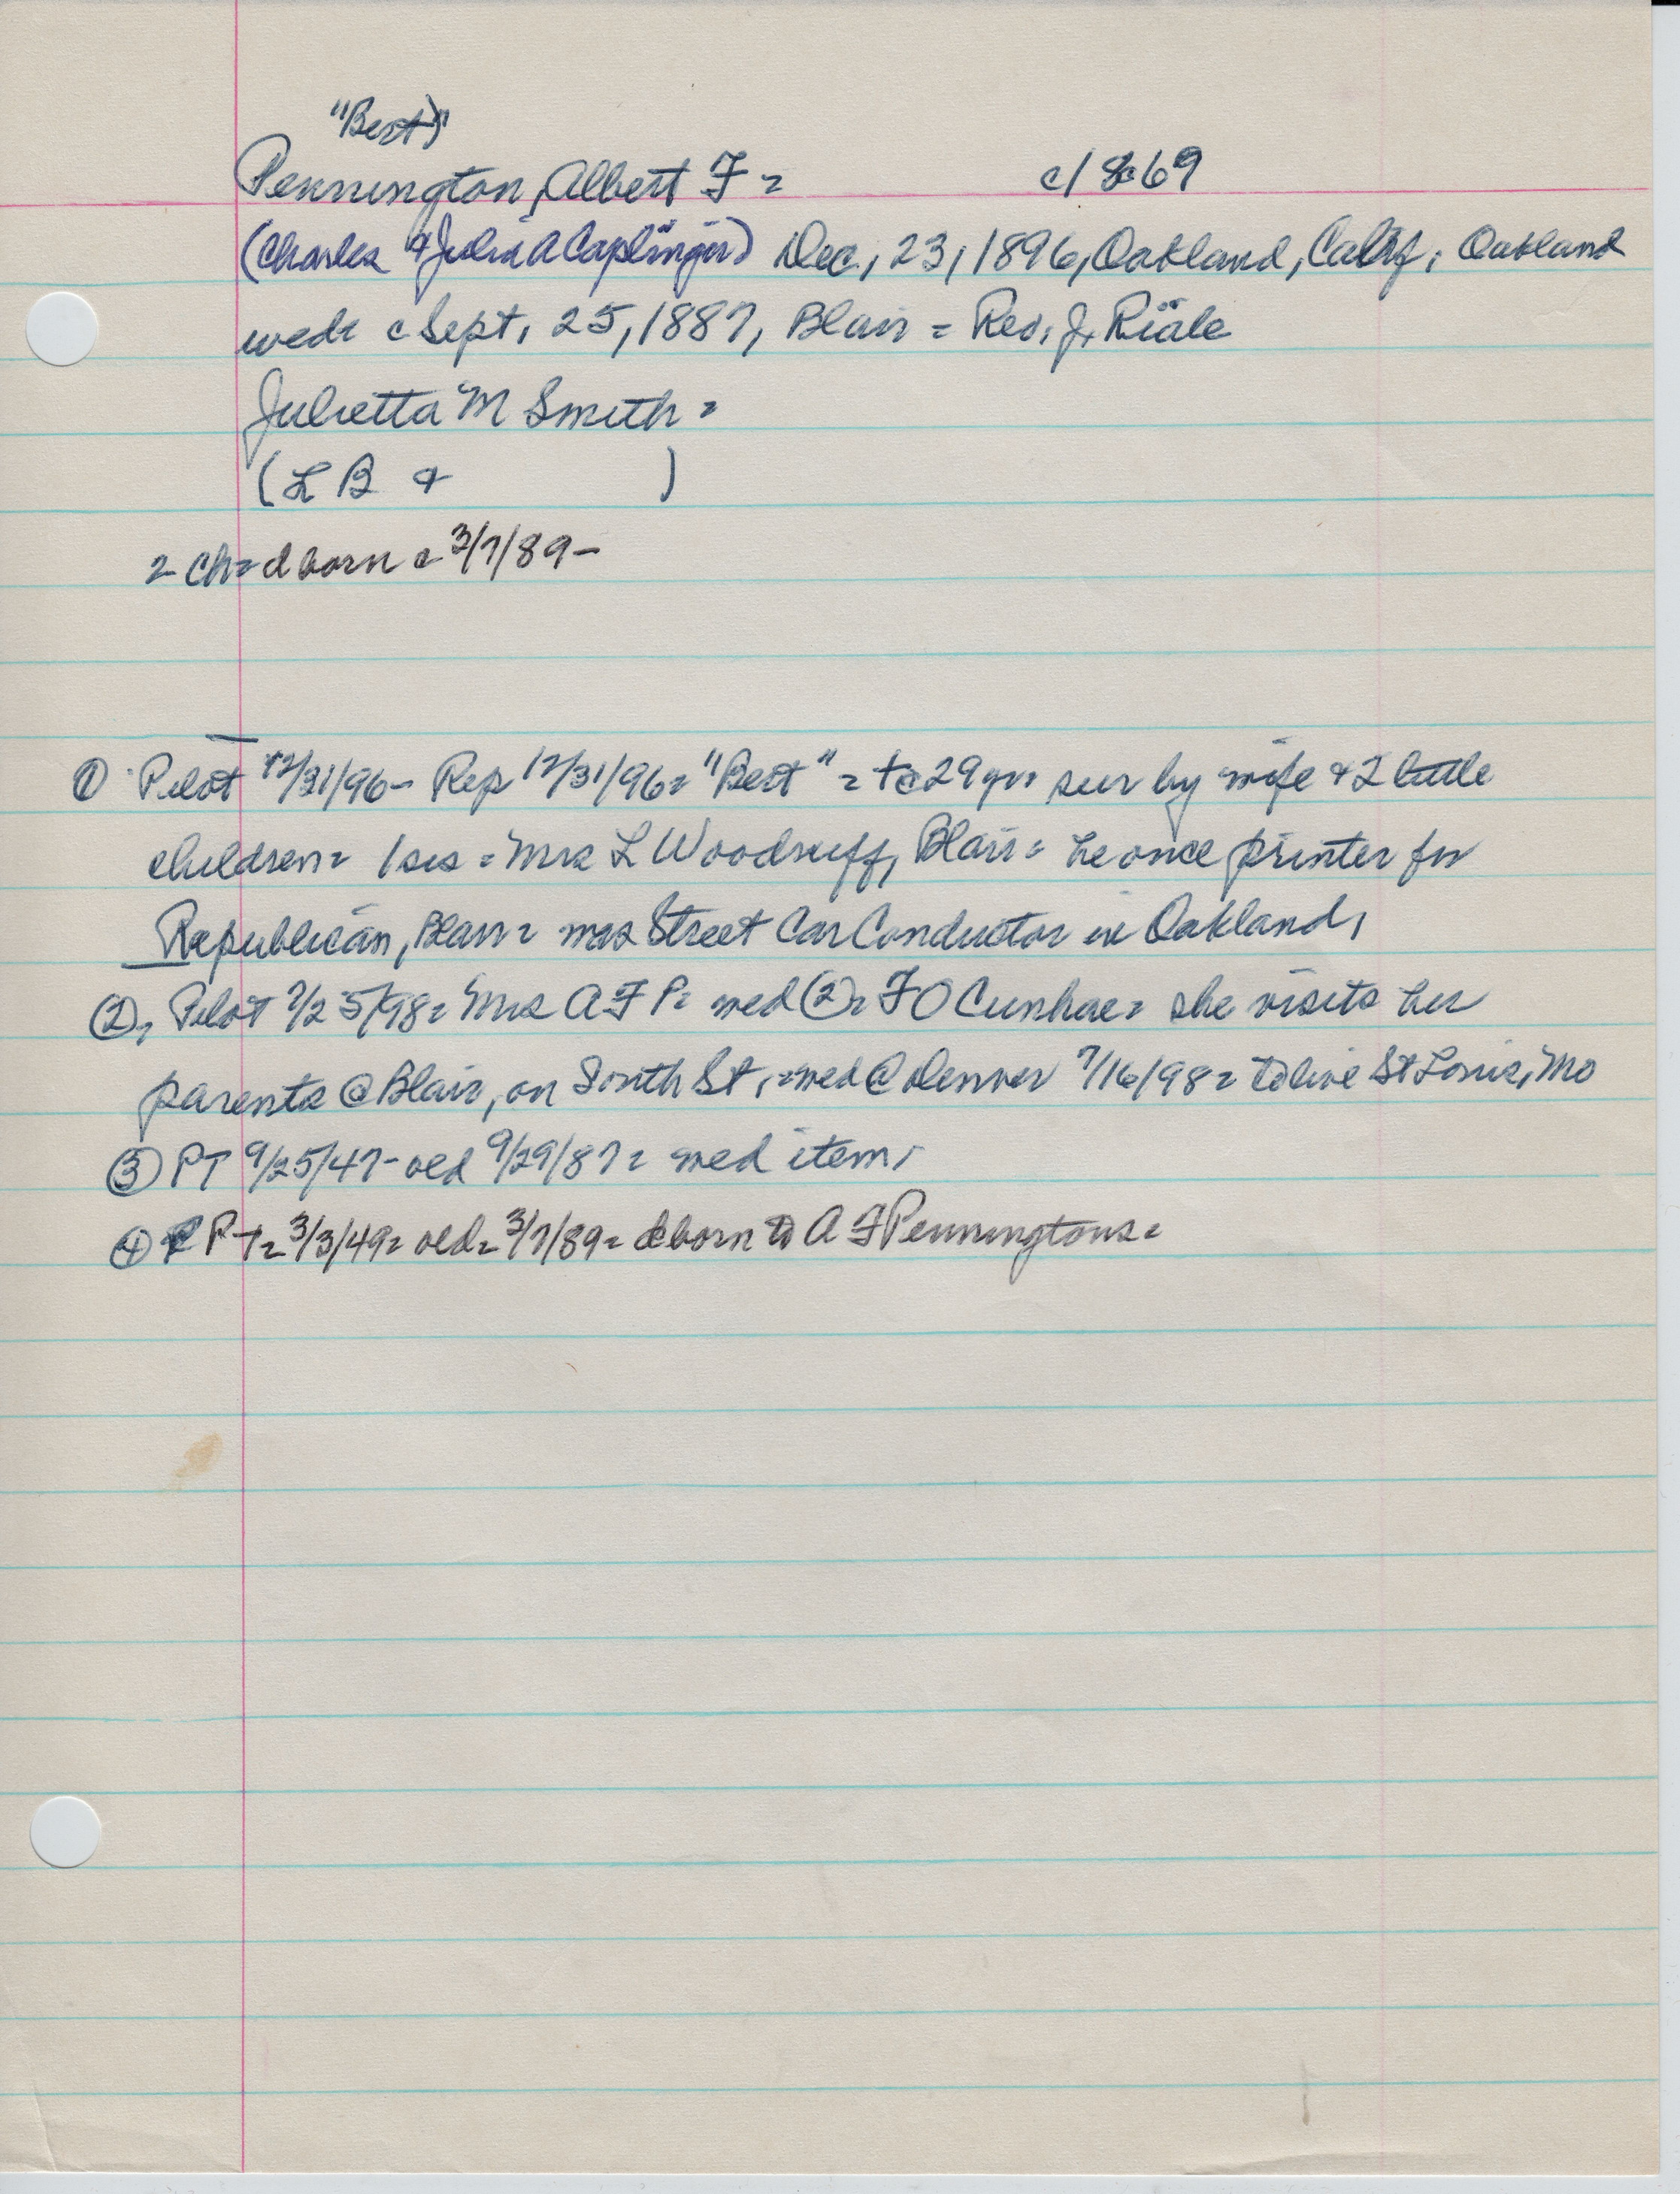 "Bert)"
Pennington, Albert F = c/1869
(Charles & Julia A Caplinger) Dec, 23, 1896, Oakland, Calif, Oakland
wed= c Sept, 25, 1887, Blair = Rev, J, Riale
Julietta M Smith =
(L B & )
2 ch= d born c 3/7/89-
① Pilot 12/31/96- Rep 12/31/96= "Bert" = +c 29 yrs sur by wife & 2 little
children= 1 sis = Mrs L Woodruff, Blair= he once printer for
Republican, Blair= was Street Car Conductor in Oakland,
②, Pilot 7/25/98= Mrs A F P= wed (2)= F O Cunhae= she visits her
parents @ Blair, on South St,=wed @ Denver 7/16/98= to live St Louis, Mo
③ PT 9/25/47- old 9/29/87= wed item,
④ PT= 3/3/49= old= 3/7/89= d born to A F Penningtons=